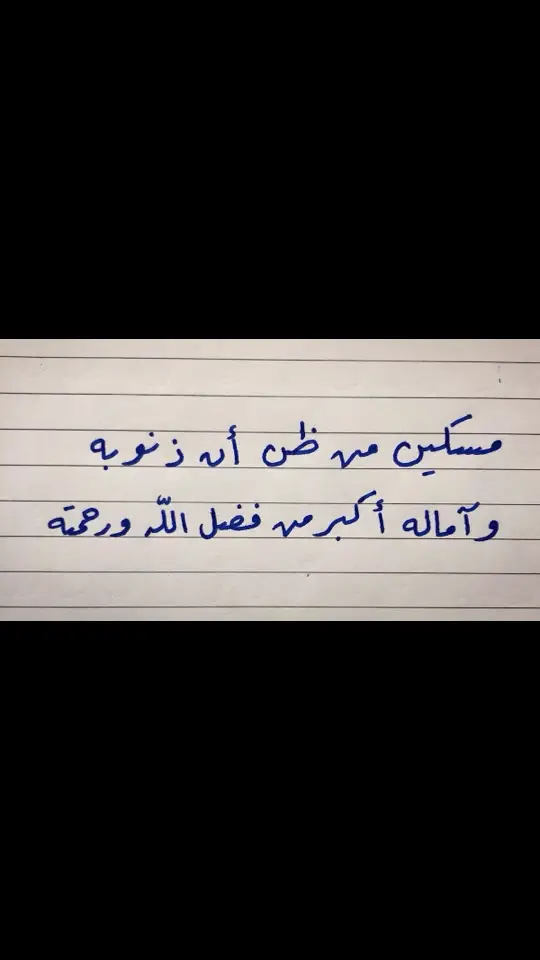 مسكين من ظن أن ذنوبه
وآماله أكبر من فضل اللّه ورحمته